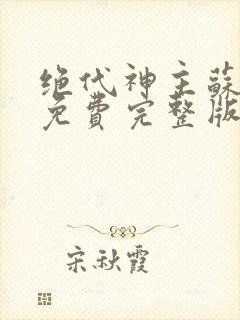 绝代神主蘇
免費完整版
宋秋霞